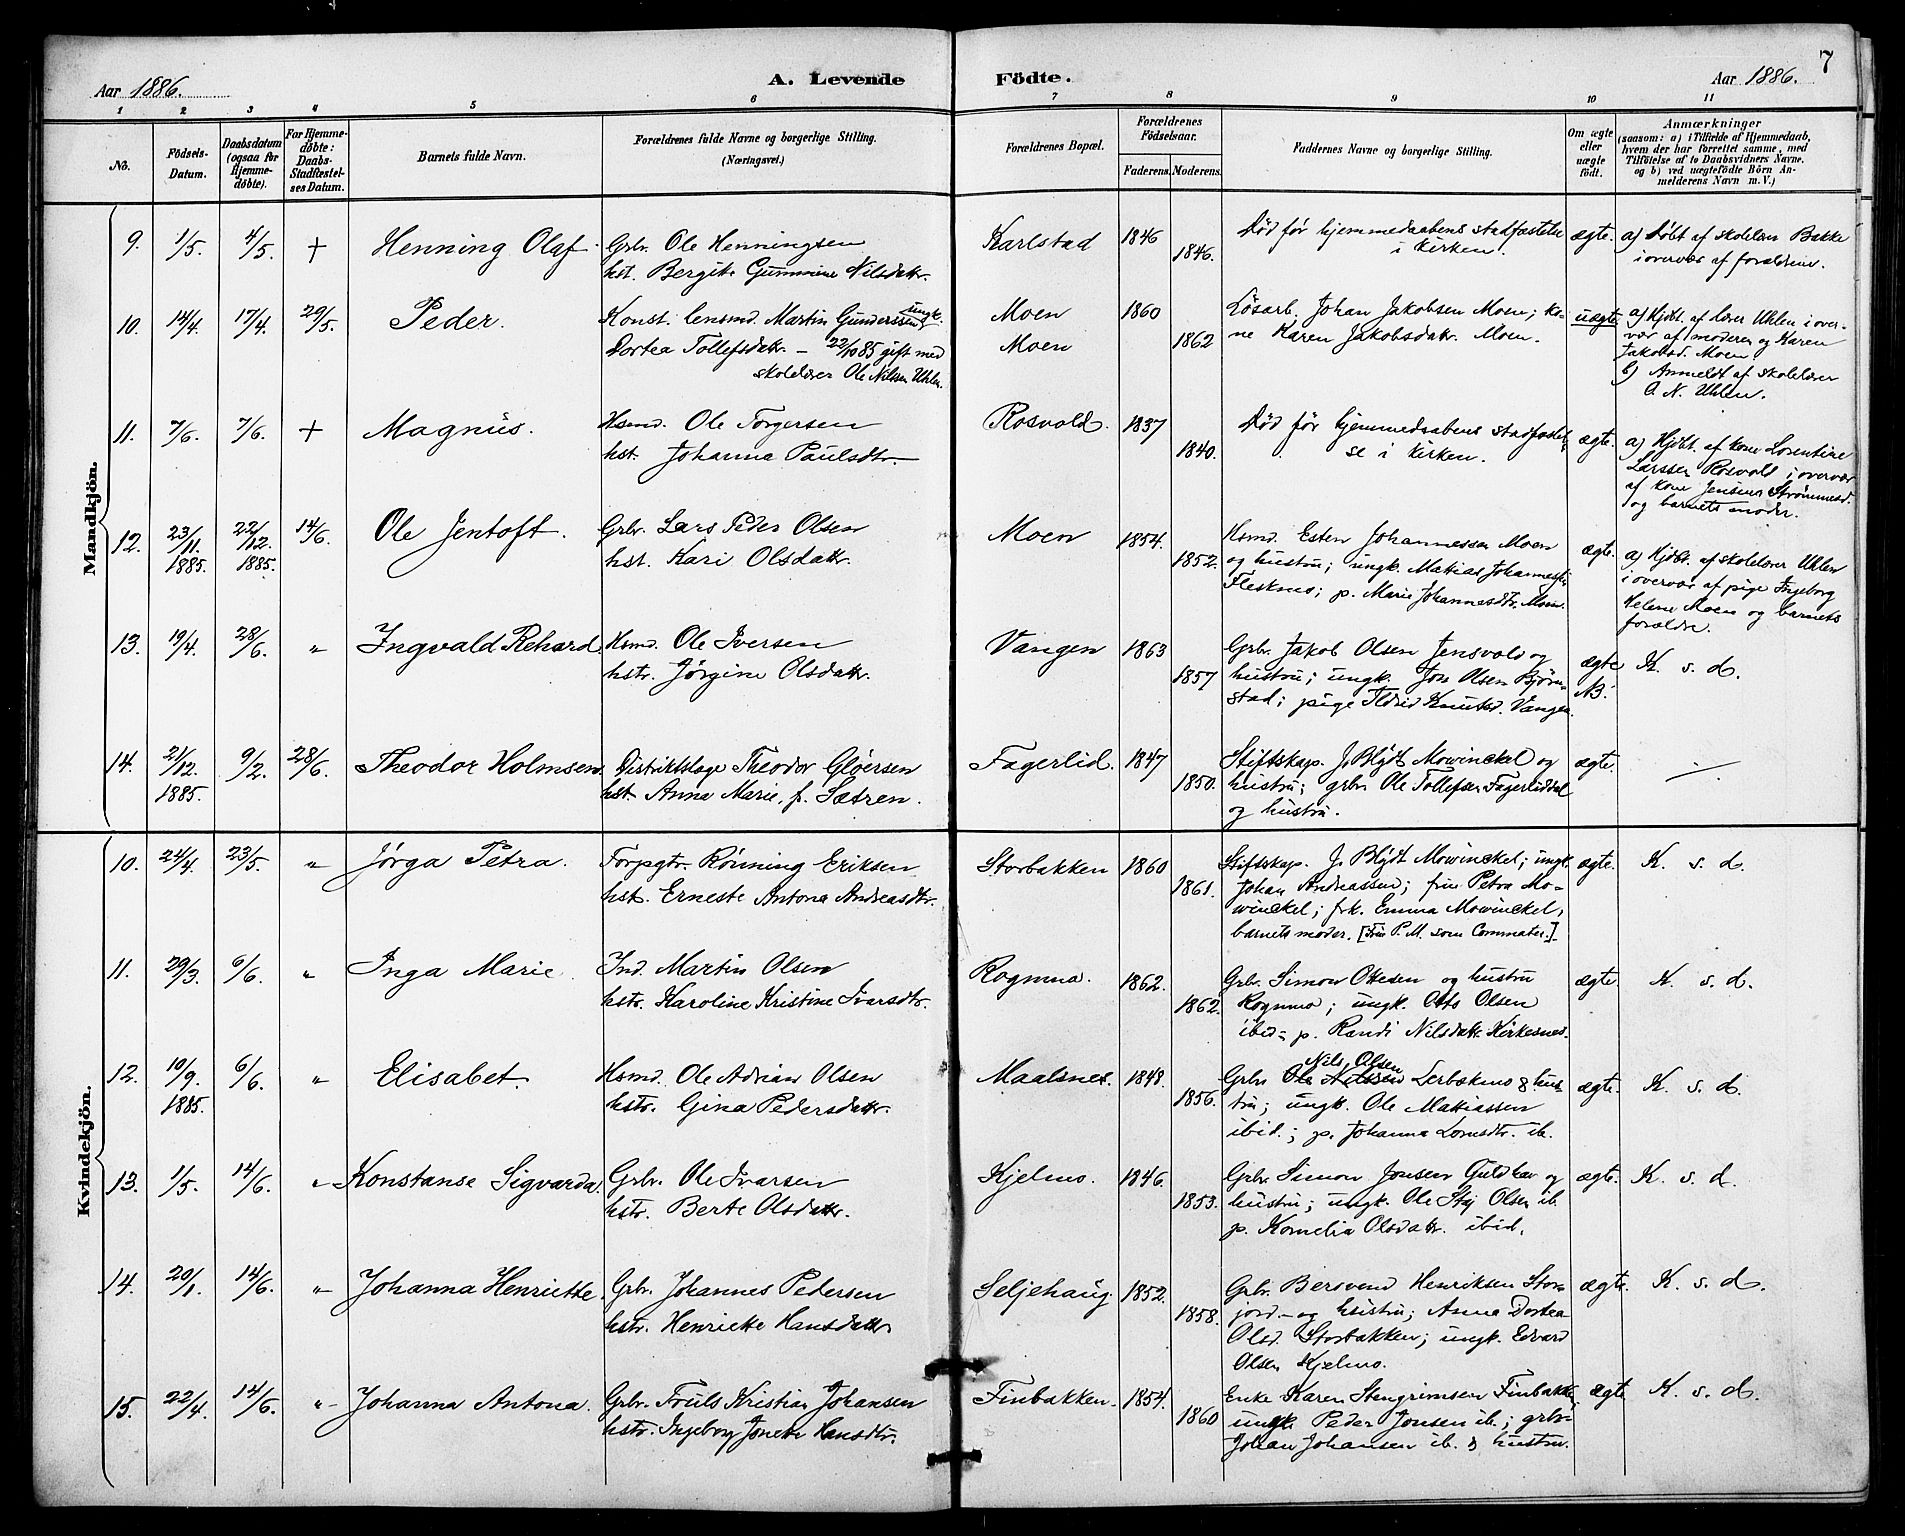 7
Aar 1886.
A. Levende
Födte.
Aar 1886.
1 2 3 4 5 6 7 8 9 10 11
No.
Födsels-
Datum.
Daabsdatum
(ogsaa for
Hjemme-
döbte).
For Hjemme-
döbte:
Daabs-
Stadfæstel-
ses Datum.
Barnets fulde Navn.
Forældrenes fulde Navne og borgerlige Stilling.
(Næringsvei.)
Forældrenes Bopæl.
Forældrenes
Födselsaar.
Faderens. Moderens.
Faddernes Navne og borgerlige Stilling.
Om ægte
eller
uægte
födt.
Anmærkninger
(saasom: a) i Tilfælde af Hjemmedaab,
hvem der har forrettet samme, med
Tilföielse af to Daabsvidners Navne.
og b) ved uægtefödte Börn An-
melderens Navn m. V.)
Mandkjön.
9. 1/5. 4/5. + Henning Olaf.
Grbr. Ole Henningsen
hst. Bergite Gunnine Nilsdattr.
Karlstad 1846 1846.
Død før hjemmedaabens stadfæstelse
i kirken.
ægte.
a) Døbt af skolelær. Bakke
i overvær af forældrene.
10. 14/4. 17/4. 29/5. Peder.
Konst. lensmd. Martin Gundersen ungk.
Dortea Tollefsdatr. – 22/10 85 gift med
skolelærer Ole Nilsen Uhlen.
Moen
Moen
1860 1862
Løsarb. Johan Jakobsen Moen; ko-
ne Karen Jakobsdatr. Moen.
uægte.
a) Hjdbt. af lærer Uhlen i over-
vær af moderen og Karen
Jakobsd. Moen.
b) Anmeldt af skolelærer
O. N. Uhlen.
11. 7/6. 7/6. + Magnus.
Hsmd. Ole Torgersen
hst. Johanna Paulsdtr.
Rosvold. 1837 1840.
Død før hjemmedaabens stadfæstel-
se i kirken.
ægte.
a) Hjdbt. af kone Lorentine
Larssen Rosvold i overvær
af kone Jensine Strømmesd.
og barnets moder.
12. 23/11. 1885. 22/12. 1885. 14/6. Ole Jentoft.
Grbr. Lars Peder Olsen
hst. Kari Olsdatr.
Moen 1854. 1852.
Hsmd. Esten Johannessen Moen
og hustru; ungk. Mattias Johannessen
Fleskmo; p. Marie Johannesdtr. Moen.
ægte.
a) Hjdbt. af skolelærer Uhlen
i overvær af pige Ingeborg
Helene Moen og barnets
forældre.
13. 19/4. 28/6. " Ingvald Rehard.
Hsmd. Ole Iversen
hstr. Jørgine Olsdatr.
Vangen 1863 1857
Grbr. Jakob Olsen Jensvold og
hustru; ungk. Jon Olsen Bjørn-
stad; pige Ildrid Knutsd. Vangen.
ægte
NB.
K. s. d.
14. 21/12. 1885. 9/2. 28/6. Theodor Holmsen.
Distriktslæge Theodor Gløersen
hst. Anna Marie, f. Sætren.
Fagerlid. 1847 1850.
Stiftskap. J. Blydt Mowinckel og
hustru; grbr. Ole Tollefsen Fagerliddal
og hustru.
ægte.
Kvindekjön.
10. 24/4. 23/5. " Jørga Petra.
Forpgtr. Rønning Eriksen
hst. Erneste Antona Andreasdtr.
Storbakken 1860 1861.
Stiftskap. J. Blydt Mowinckel; ungk.
Johan Andreassen; fru Petra Mo-
winckel; frk. Emma Mowinckel,
barnets moder. [Fru P. M. som Commater.]
ægte. K. s. d.
11. 29/3. 6/6. " Inga Marie.
Ind. Martin Olsen
hstr. Karoline Kristine Ivarsdtr.
Rogmmo. 1862. 1862.
Grbr. Simon Ottesen og hustru
Rogmmo; ungk. Otto Olsen
ibid – p. Randi Nilsdatr. Kirkesnes.
ægte. K. s. d.
12. 10/9. 1885. 6/6. " Elisabet.
Hsmd. Ole Adrian Olsen
hstr. Gina Pedersdatr.
Maalsnes. 1848. 1856.
Nils Olsen
Grbr. Ole Nilssen Lerbækmo & hus-
tru; ungk. Ole Mattiassen
ibid.; p. Johanna Lornsdtr. ib.
ægte. K. s. d.
13. 1/5. 14/6. " Konstanse Sigvarda.
Grbr. Ole Ivarsen
hstr. Berte Olsdatr.
Kjelmo. 1846. 1853.
Grbr. Simon Jonsen Guldhav og
hustru; ungk. Ole Stoj Olsen ib.
p. Kornelia Olsdatr. ibid.
ægte. K. s. d.
14. 20/1. 14/6. " Johanna Henriette.
Grbr. Johannes Pedersen
hstr. Henriette Hansdattr.
Seljehaug. 1852. 1858.
Grbr. Bersvend Henriksen Stor-
jord – og hustru; Anna Dortea
Olsd. Storbakken; ungk. Edvard
Olsen Kjelmo.
ægte. K. s. d.
15. 22/4. 14/6. " Johanna Antona.
Grbr. Fouls Kristian Johansen
hstr. Ingeborg Jonette Hansdtr.
Finbakken. 1854. 1860
Enke Karen Stengrimsen Finbakk.
ungk. Peder Jonsen ib.; grbr.
Johan Johansen ib. & hustru.
ægte. K. s. d.